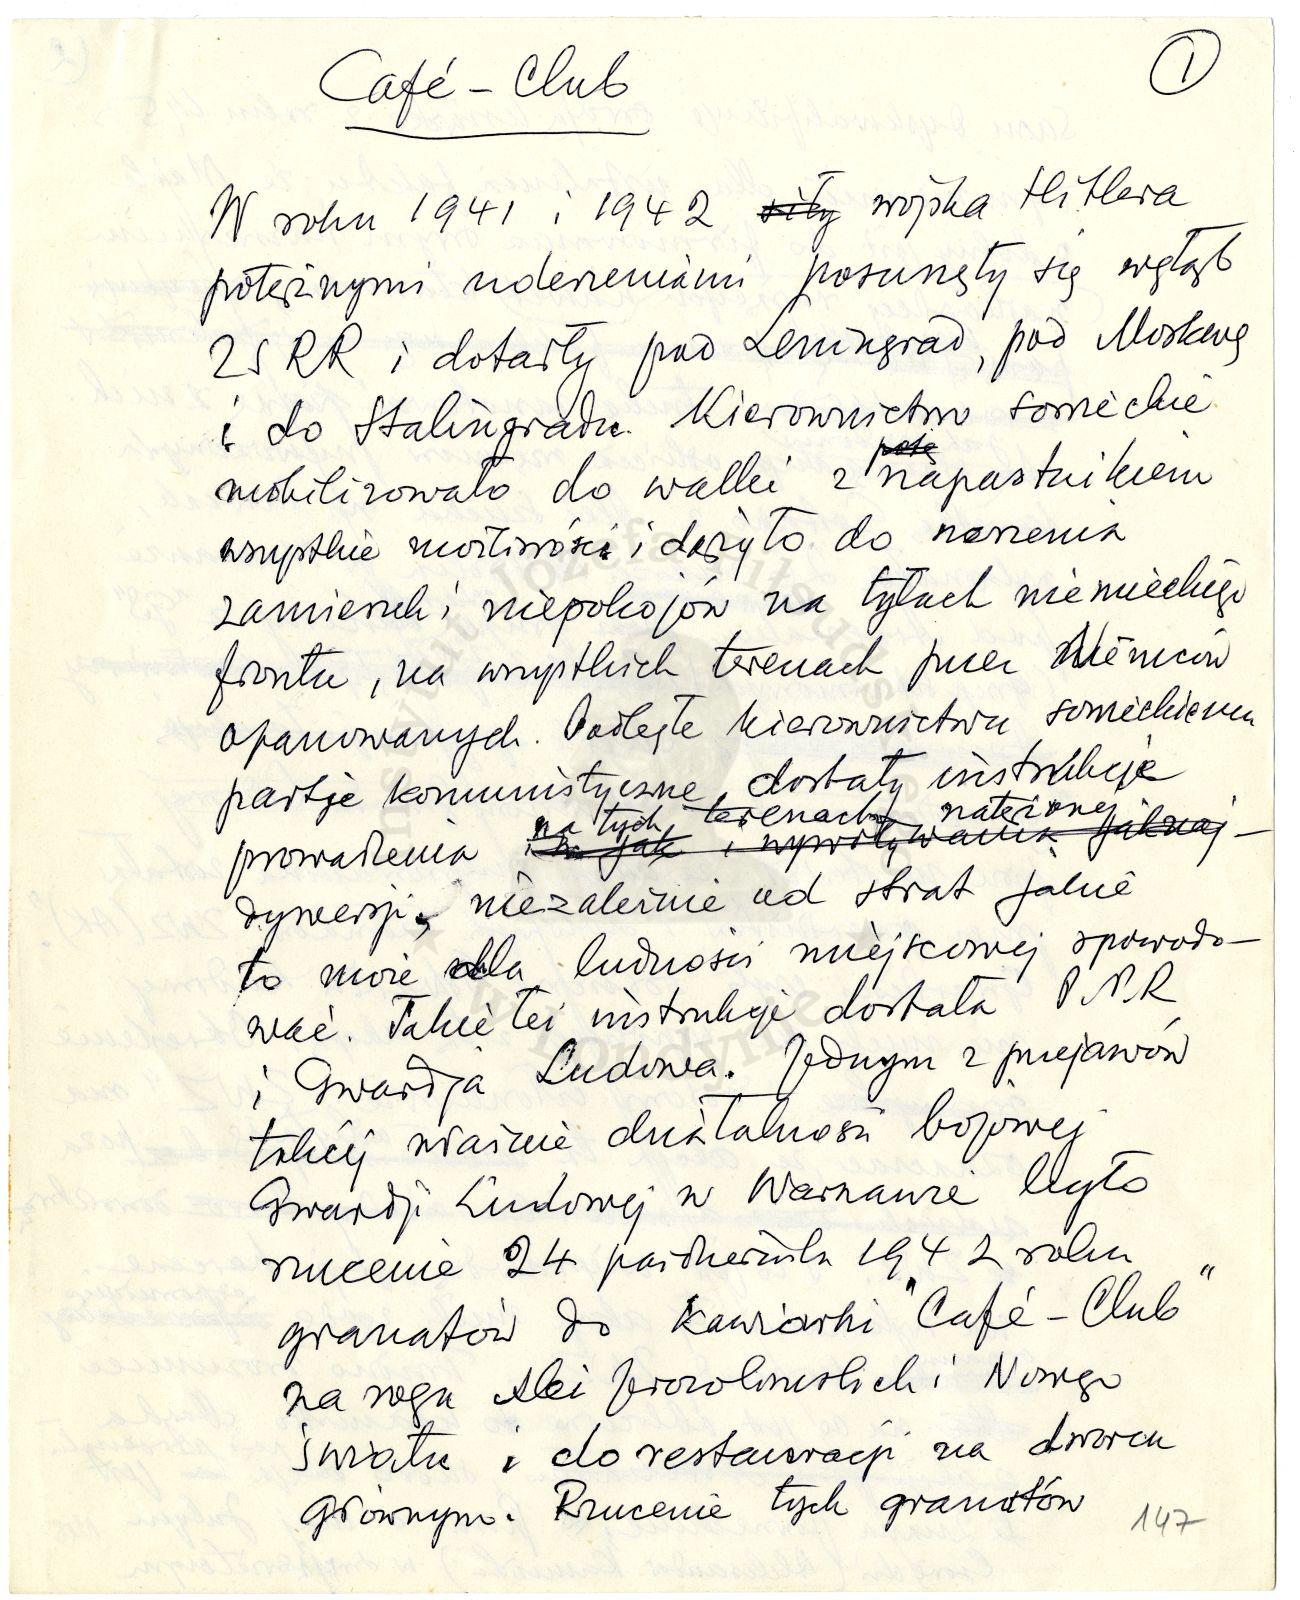 Café – Club
1
W roku 1941 i 1942 siły wojska Hitlera
potężnymi uderzeniami posunęły się wgłąb
ZSRR i dotarły pod Leningrad, pod Moskwę
i do Stalingradu. Kierownictwo sowieckie
potę
mobilizowało do walki z napastnikiem
wszystkie możliwości i dążyło do szerzenia
zamieszek i niepokojów na tyłach niemieckiego
frontu, na wszystkich terenach przez Niemców
opanowanych. Podległe kierownictwu sowieckiemu
partje komunistyczne dostały instrukcje
na tych terenach natężonej
prowadzenia jak i wywoływania jaknaj-
dywersji, niezależnie od strat jakie
to może dla ludności miejscowej spowodo-
wać. Takie też instrukcje dostała P.P.R
i Gwardja Ludowa. Jednym z przejawów
takiej właśnie działalności bojowej
Gwardji Ludowej w Warszawie było
rzucenie 24 października 1942 roku
granatów do kawiarni "Café – Club"
na rogu Alei Jerozolimskich i Nowego
Światu i do restauracji na dworcu
głównym. Rzucenie tych granatów
147